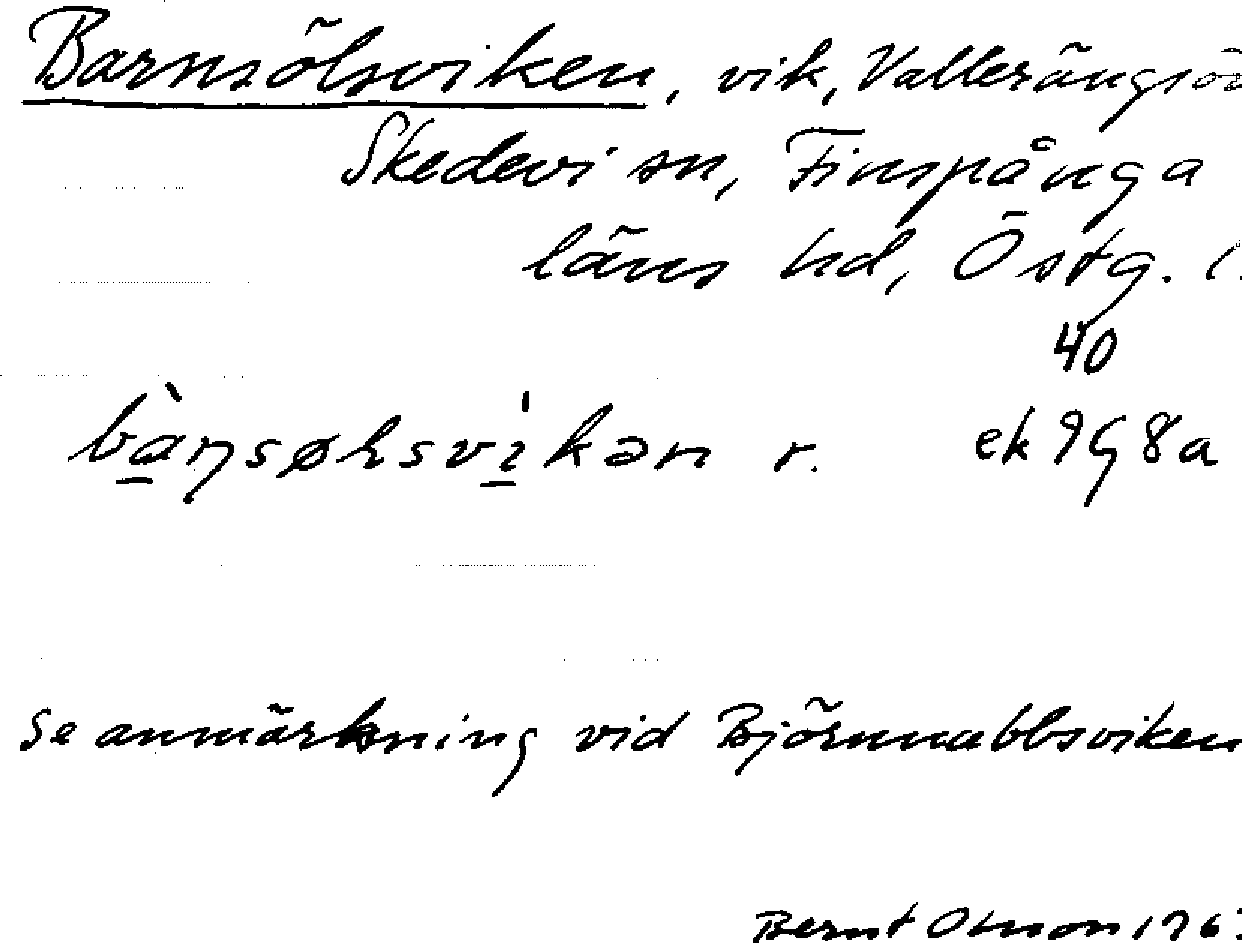 Barnsölsviken, vik, Vallerängsjön
Skedevi sn, Finspånga
läns hd, Östg. l.
40
bàṉsøłsvìkən r. ek 9G 8a
se anmärkning vid Björnnabbsviken
Bernt Olsson 196